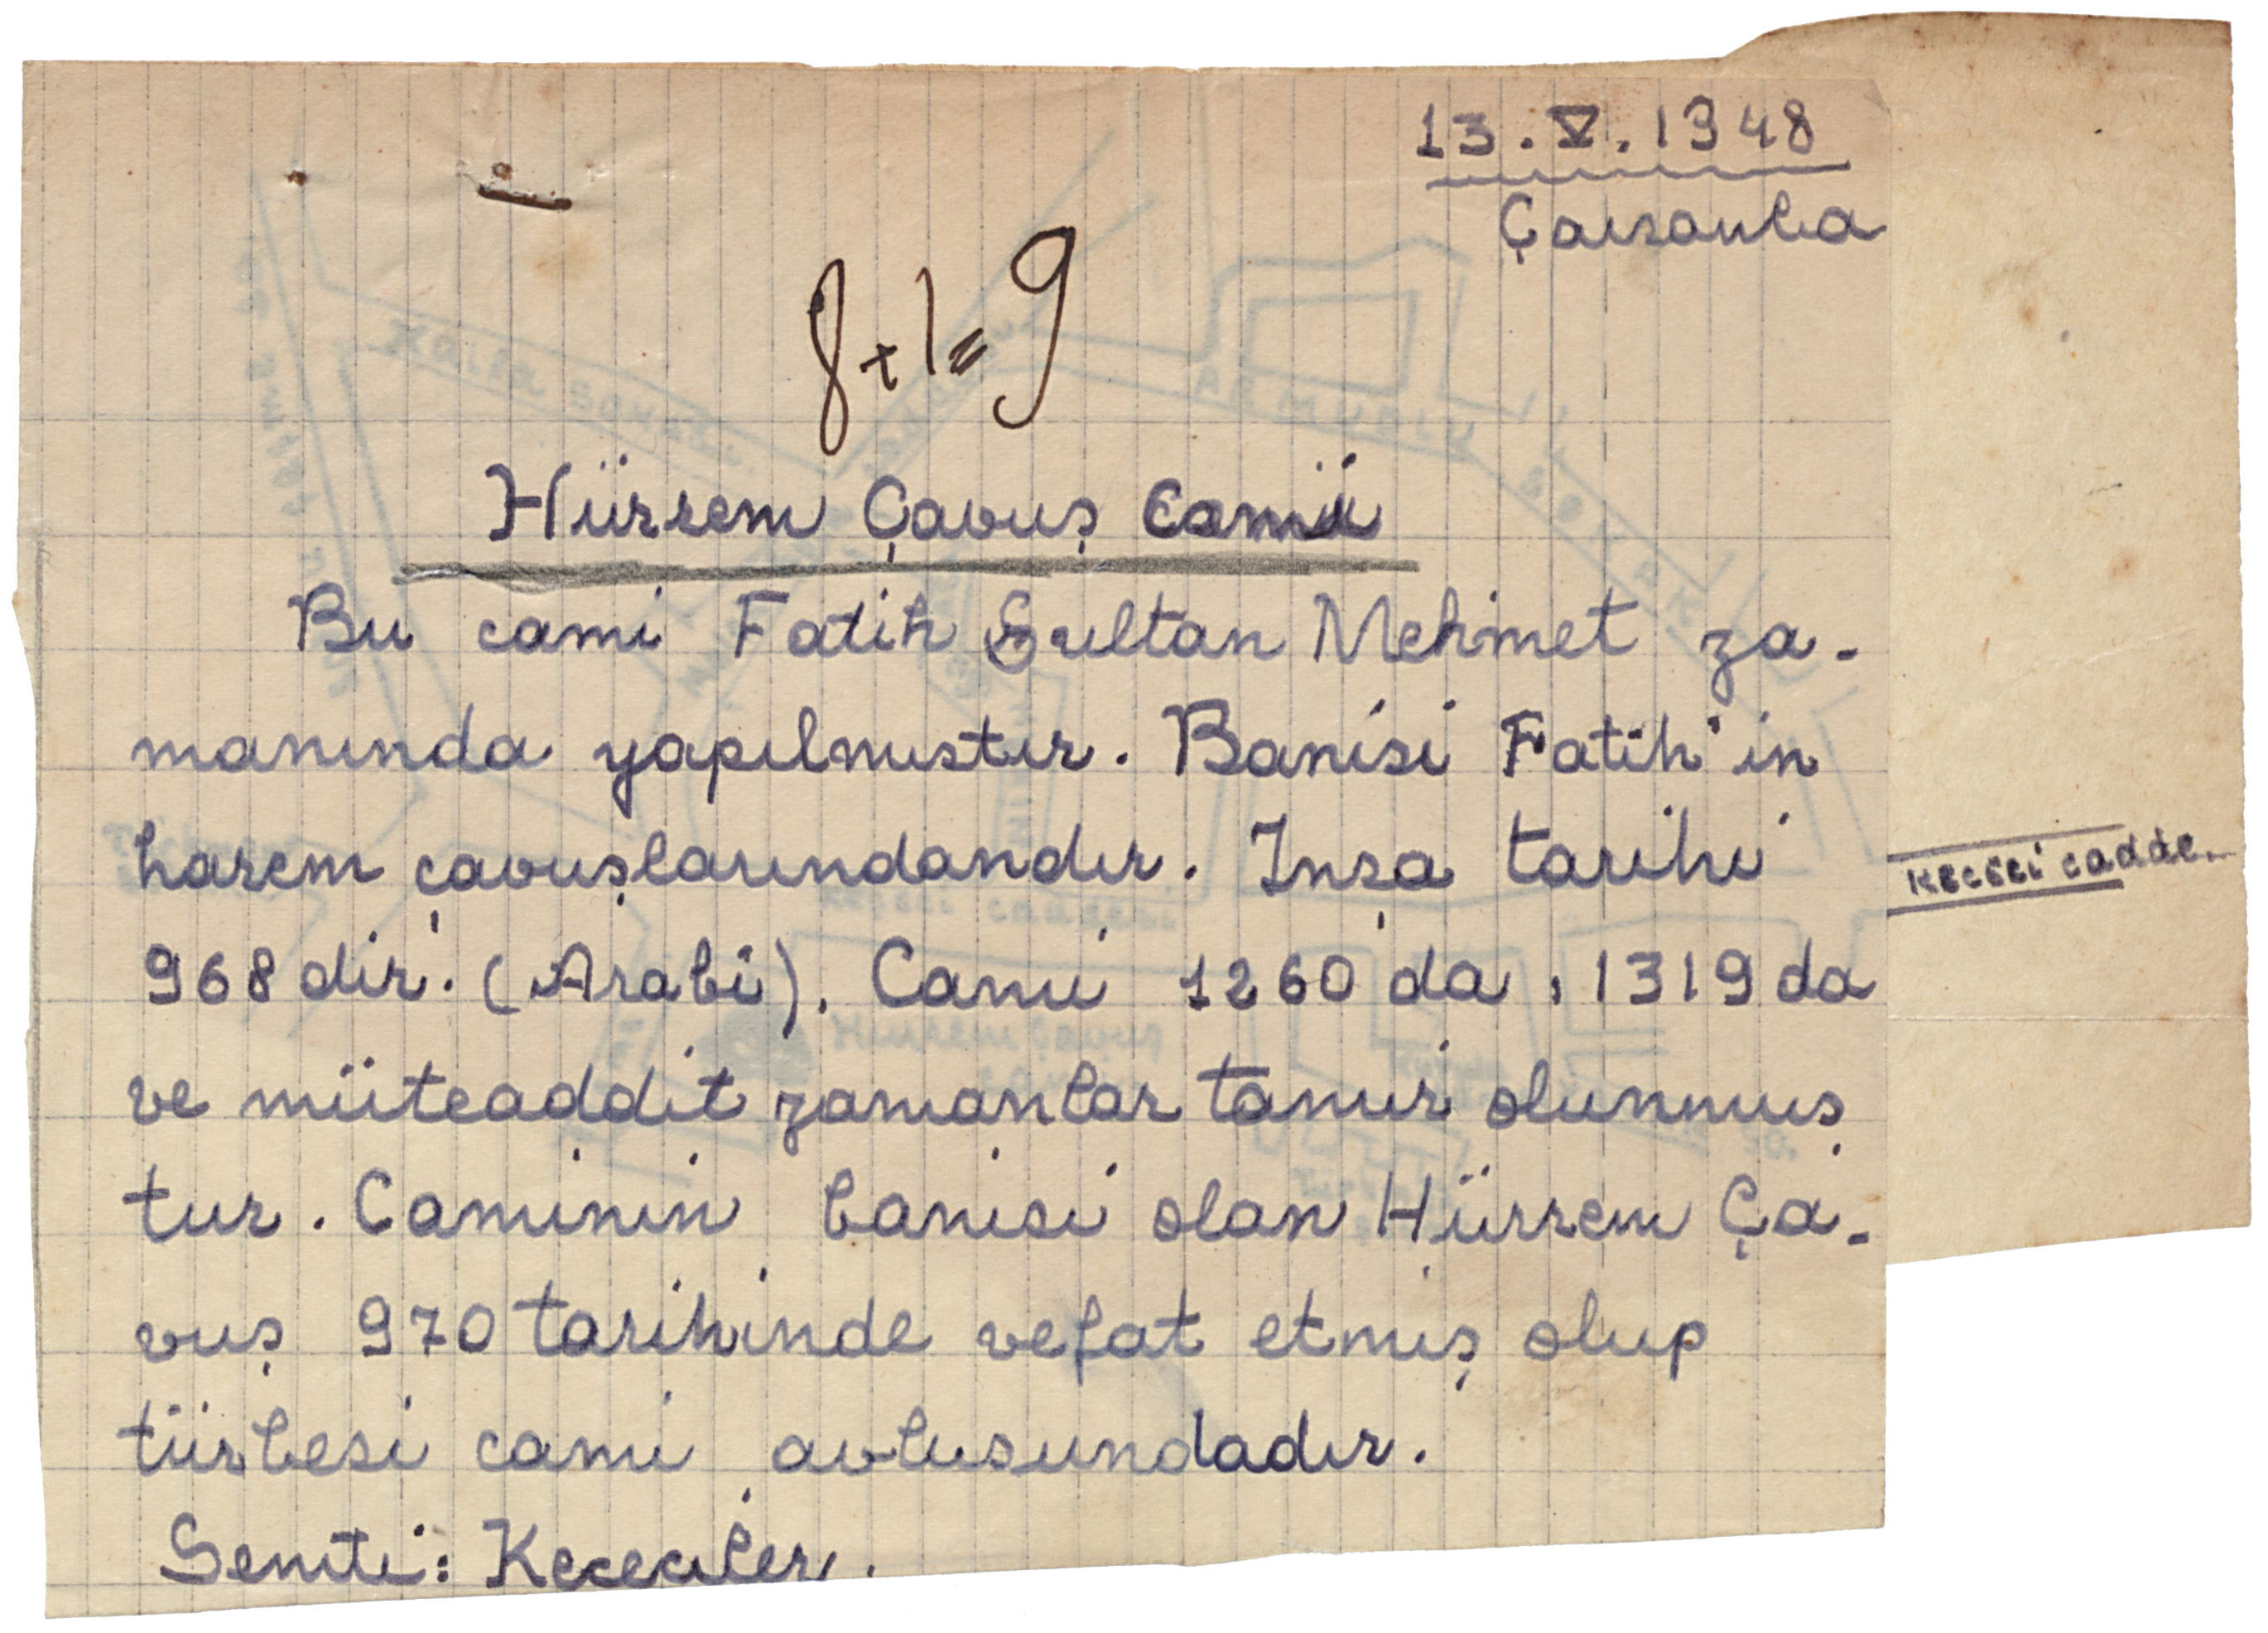 13.V.1948
Çarsanba
8+1=9
Hürrem Çavuş Camii
Bu cami Fatih Sultan Mehmet za-
manında yapılmıstır. Banisi Fatih'in
harem çavuşlarındandır. Inşa tarihi
968 dir. (Arabi). Cami 1260 da, 1319 da
ve müteaddit zamanlar tamir olunmuş
tur. Caminin banisi olan Hürrem Ça-
vuş 970 tarihinde vefat etmiş olup
türbesi cami avlusundadır.
Semti: Kececiler.
Kececi cadde.